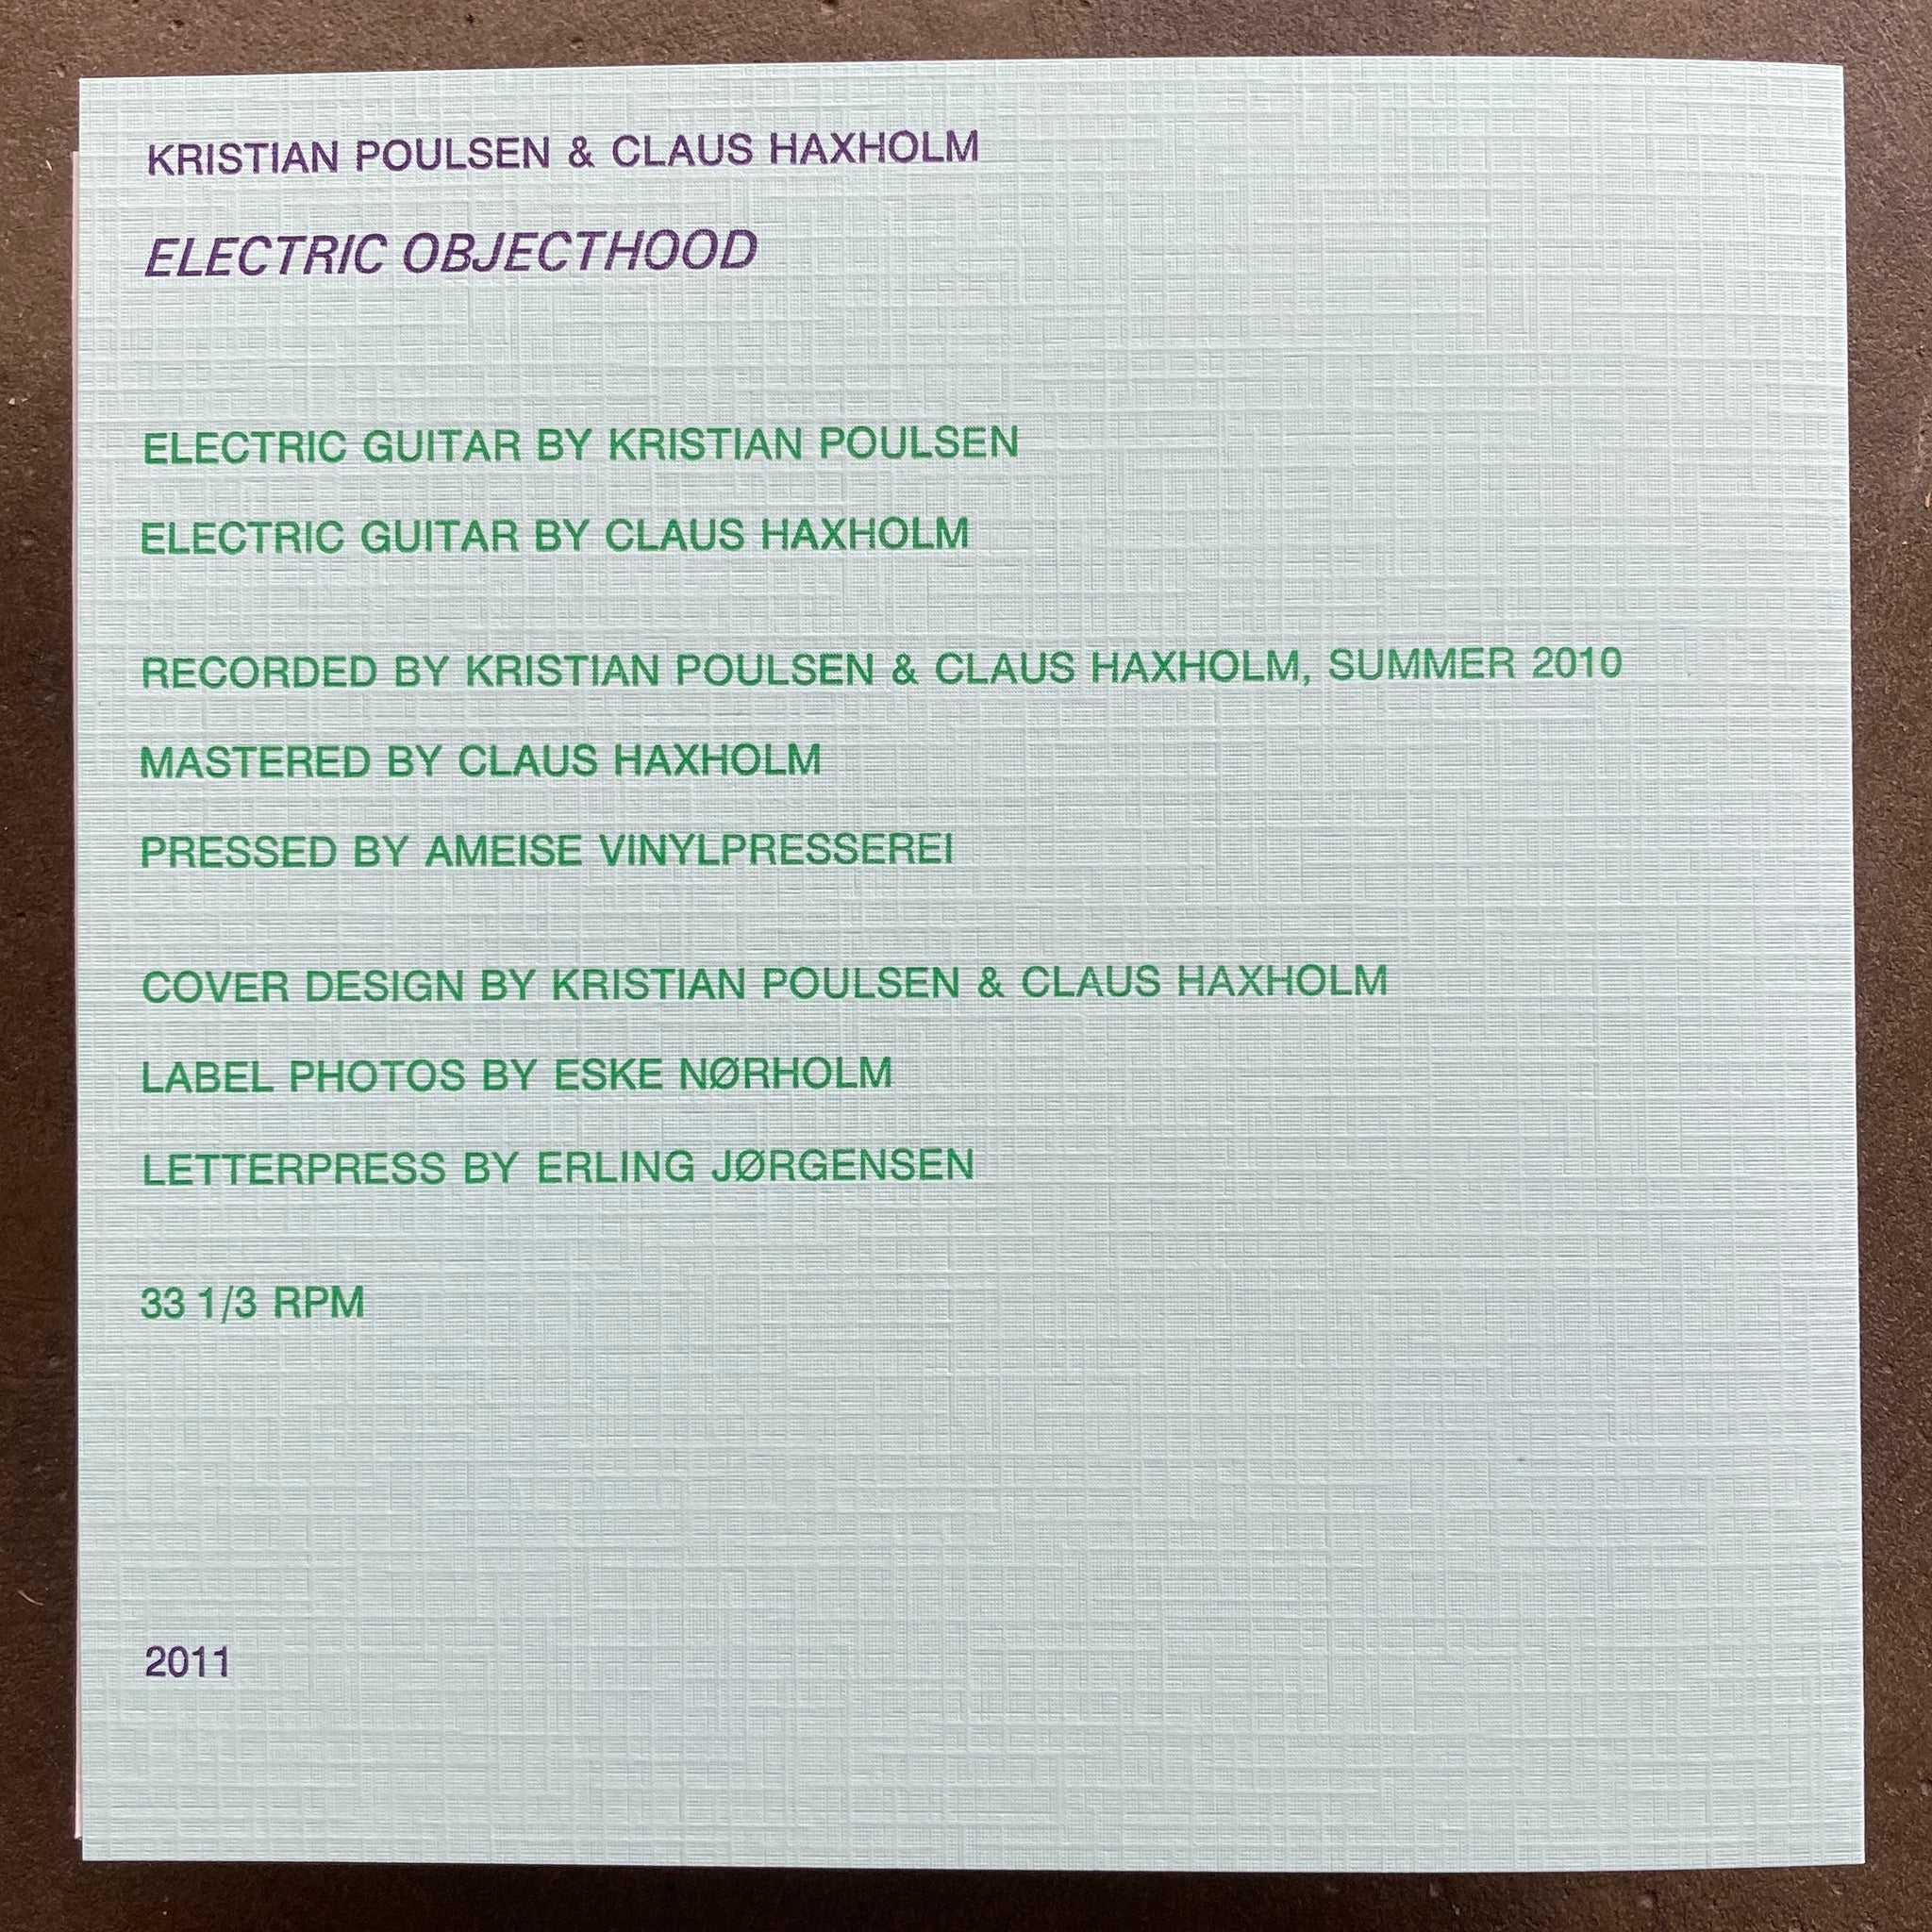 KRISTIAN POULSEN & CLAUS HAXHOLM
ELECTRIC OBJECTHOOD
ELECTRIC GUITAR BY KRISTIAN POULSEN
ELECTRIC GUITAR BY CLAUS HAXHOLM
RECORDED BY KRISTIAN POULSEN & CLAUS HAXHOLM, SUMMER 2010
MASTERED BY CLAUS HAXHOLM
PRESSED BY AMEISE VINYLPRESSEREI
COVER DESIGN BY KRISTIAN POULSEN & CLAUS HAXHOLM
LABEL PHOTOS BY ESKE NØRHOLM
LETTERPRESS BY ERLING JØRGENSEN
33 1/3 RPM
2011